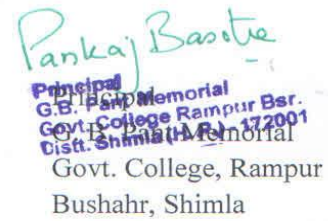 Pankaj Basotra
Principal
G.B. Pant Memorial
Govt. College Rampur Bsr.
Distt. Shimla (H.P.) 172001
Principal
G. B. Pant Memorial
Govt. College, Rampur
Bushahr, Shimla